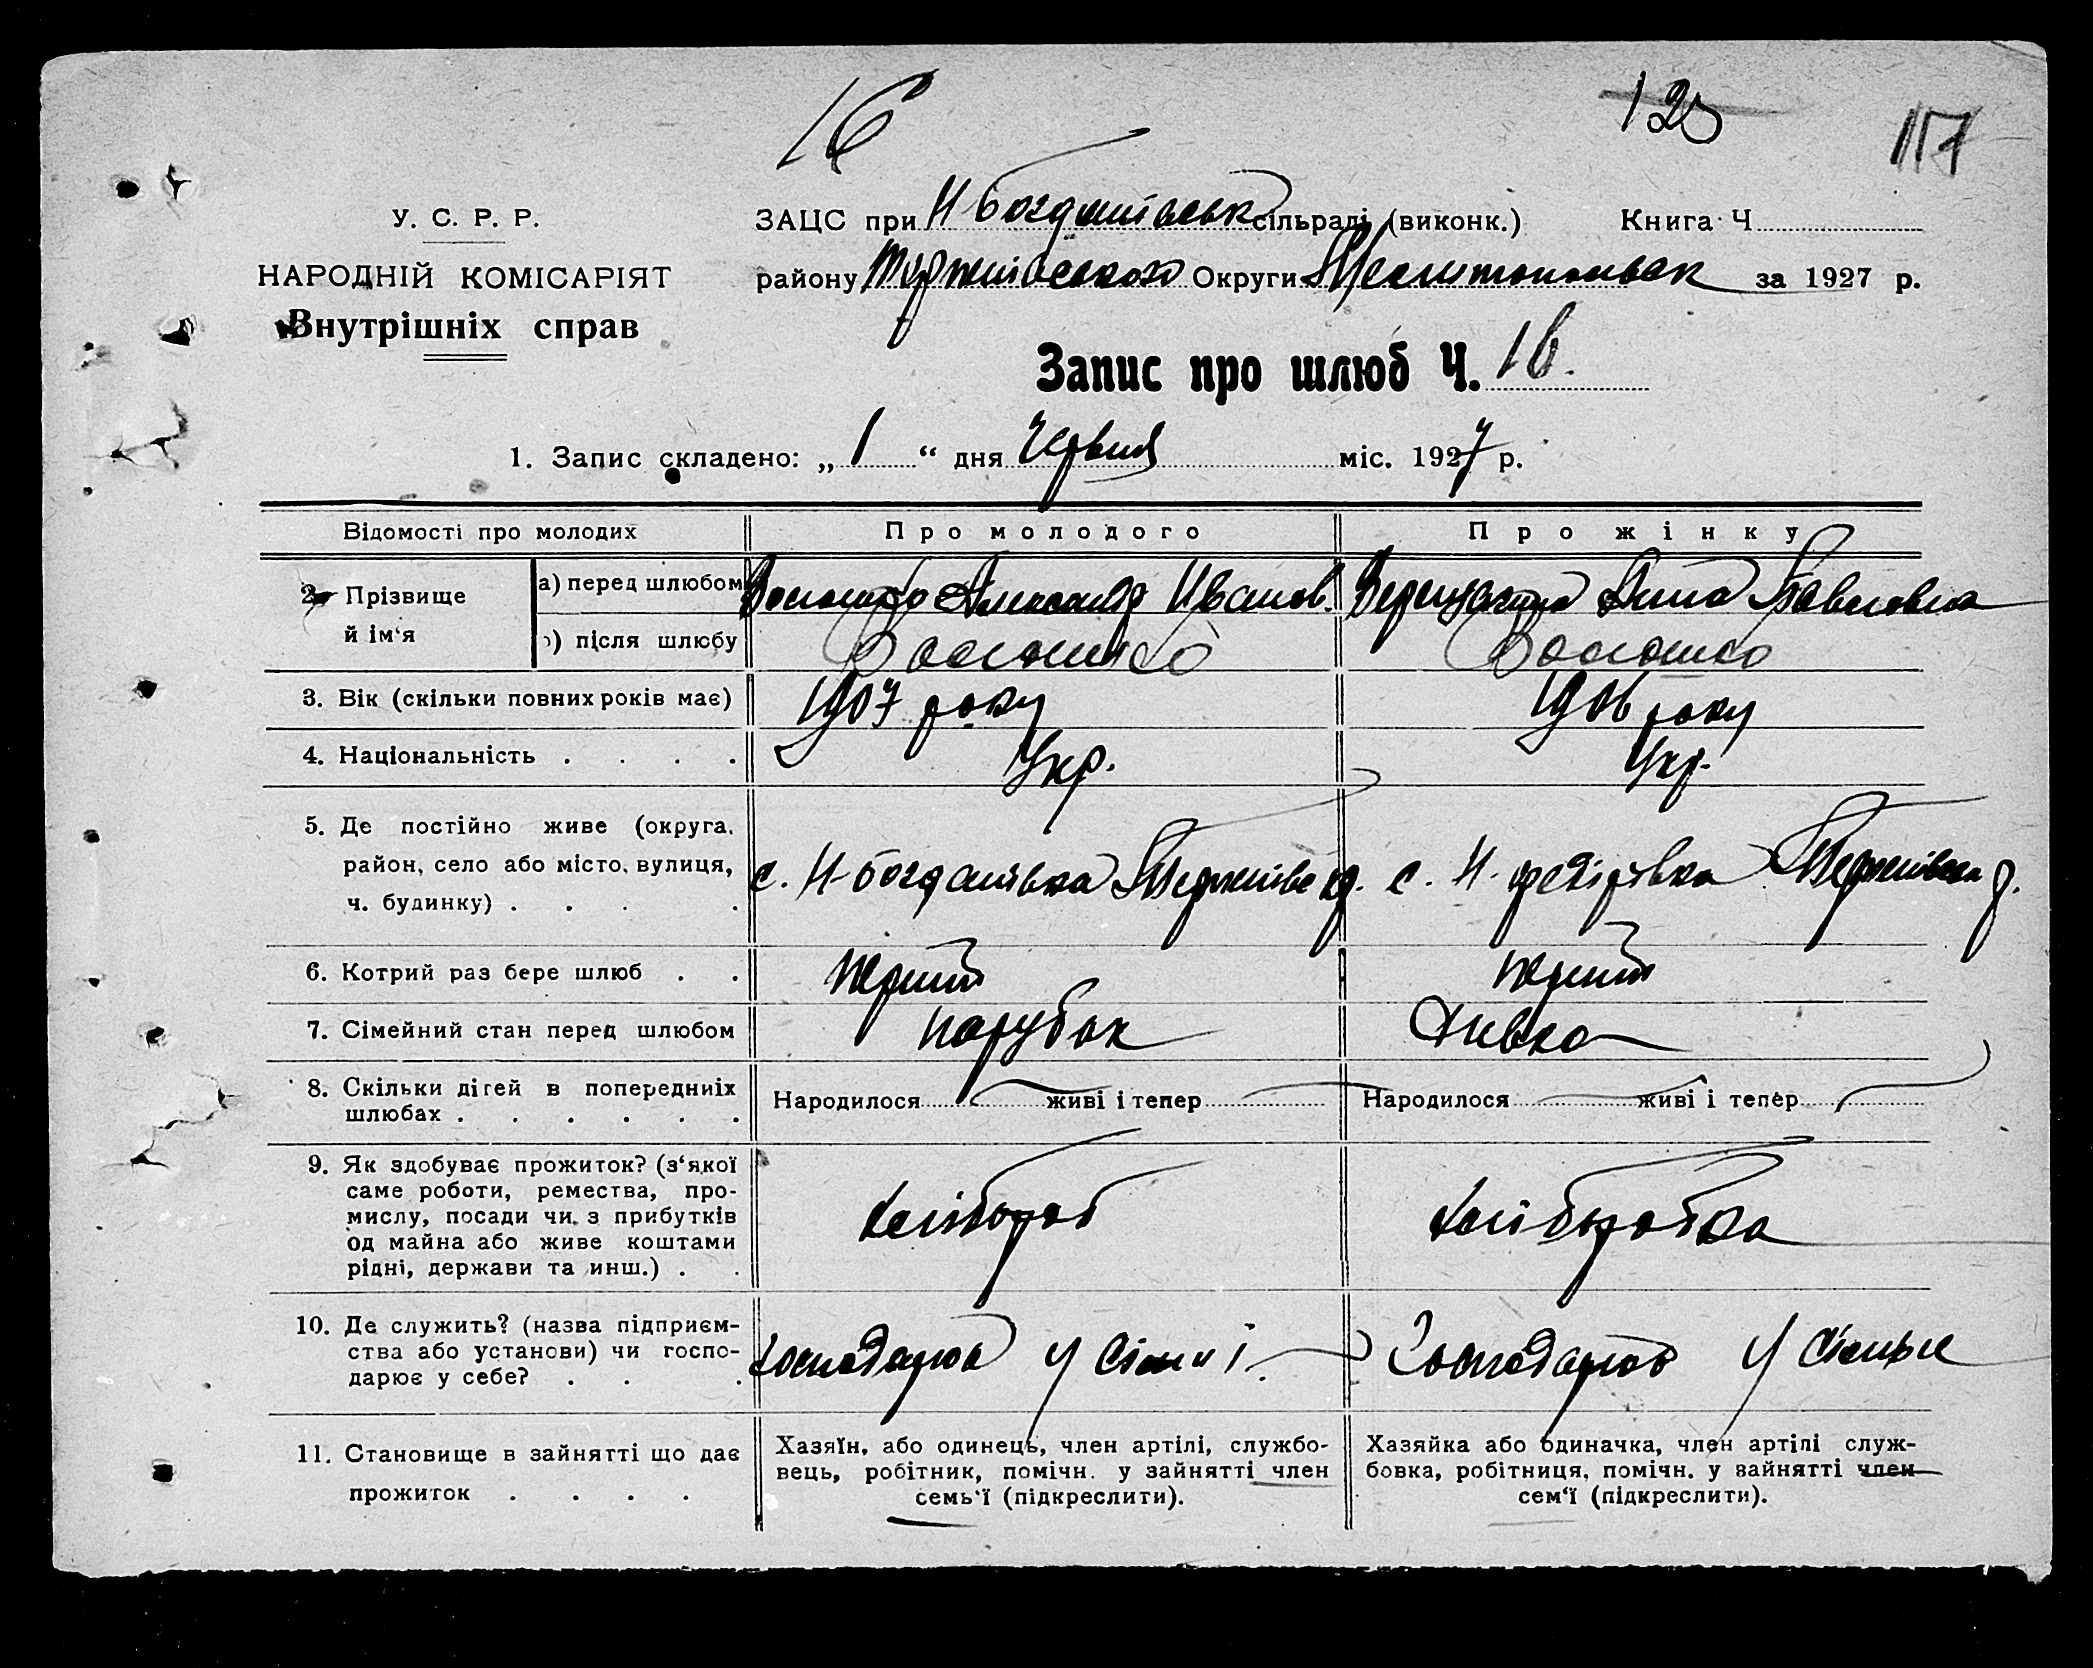 16
123
117
У. С. Р. Р.
НАРОДНІЙ КОМІСАРІЯТ
Внутрішніх справ
ЗАЦС при Н Богданівськ сільраді (виконк.) Книга Ч
району Терпніівського Округи Мелитопольск за 1927 р.
Запис про шлюб Ч. 16.
1. Запис складено: „ 1 “ дня Червня міс. 1927 р.
Відомості про молодих Про молодого Про жінку
2. Прізвище й ім‘я
а) перед шлюбом Волошко Александр Иванов. Верещагина Анна Павловна
б) після шлюбу Волошко Волошко
3. Вік (скільки повних років має) 1907 року 1906 року
4. Національність . . . . Укр. Укр.
5. Де постійно живе (округа, район, село або місто, вулиця, ч. будинку) . . . . с. Н-Богданівка р. с. Н. федірівка р.
6. Котрий раз бере шлюб . . перший перший
7. Сімейний стан перед шлюбом парубок дивка
8. Скільки дітей в попередниіх шлюбах . . . . . . Народилося живі і тепер Народилося живі і тепер
9. Як здобуває прожиток? (з‘якої саме роботи, ремества, про-
мислу, посади чи з прибутків
од майна або живе коштами
рідні, держави та инш.) . . хлібороб хліборобка
10. Де служить? (назва підприєм-
ства або установи) чи госпо-
дарює у себе? . . . господарює у сімьі. господарює у сімьи
11. Становище в зайнятті що дає
прожиток . . . .
Хазяїн, або одинець, член артілі, службо-
вець, робітник, помічн. у зайнятті член
семь‘ї (підкреслити).
Хазяйка або одиначка, член артілі служ-
бовка, робітниця, помічн. у зайнятті член
сем‘ї (підкреслити).